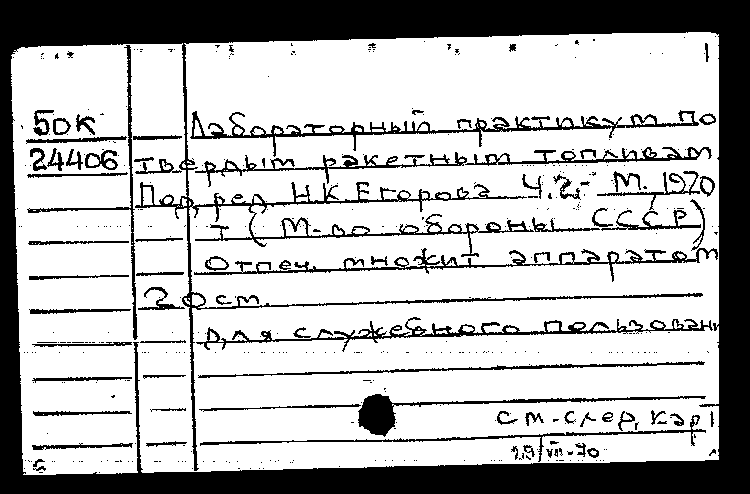 50К Лабораторный практикум по
24406 твердым ракетным топливам.
Под ред. Н.К Егорова Ч.2.- М. 1970
(М-во обороны СССР).
Отпеч. множит аппаратом
20 см.
Для служебного пользовани
см-след, кар
VII-70